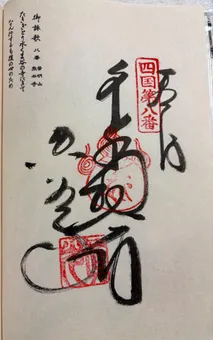 四国第八番
奉拝
千手観音
熊谷寺
御詠歌 八番 普明山 熊谷寺
たきぎとり水くま谷の寺にきて
なんぎするも後の世のため